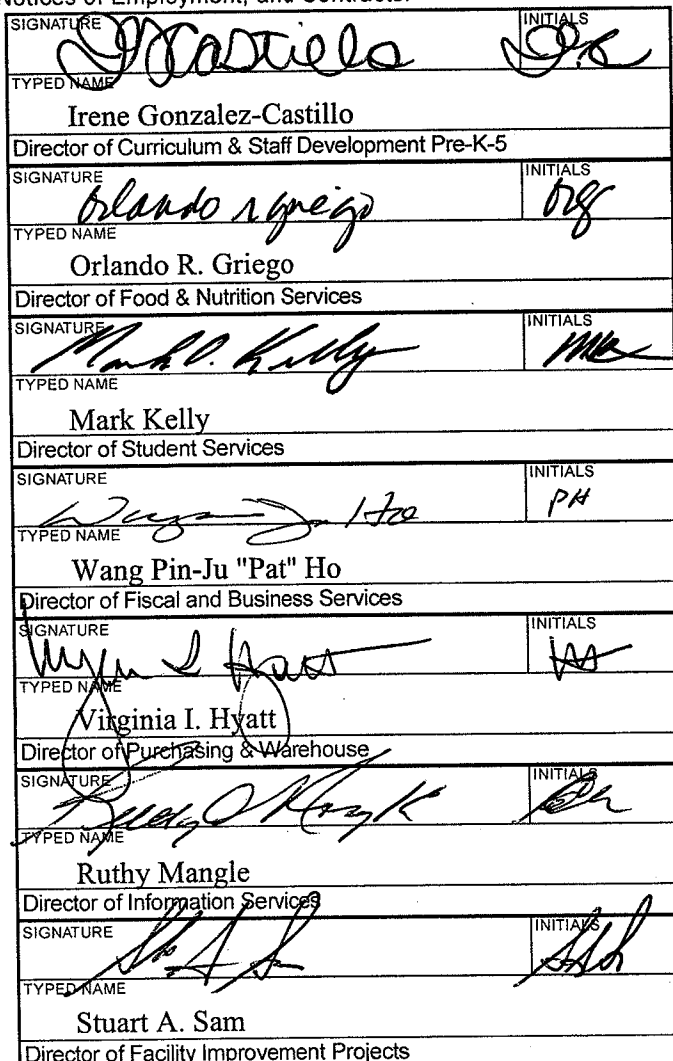 Notices of Employment, and Contracts.
SIGNATURE INITIALS
TYPED NAME
Irene Gonzalez-Castillo
Director of Curriculum & Staff Development Pre-K-5
SIGNATURE INITIALS
Orlando R Griego org
TYPED NAME
Orlando R. Griego
Director of Food & Nutrition Services
SIGNATURE INITIALS
Mark D. Kelly
TYPED NAME
Mark Kelly
Director of Student Services
SIGNATURE INITIALS
PH
TYPED NAME
Wang Pin-Ju "Pat" Ho
Director of Fiscal and Business Services
SIGNATURE INITIALS
TYPED NAME
Virginia I. Hyatt
Director of Purchasing & Warehouse
SIGNATURE INITIALS
TYPED NAME
Ruthy Mangle
Director of Information Services
SIGNATURE INITIALS
TYPED NAME
Stuart A. Sam
Director of Facility Improvement Projects